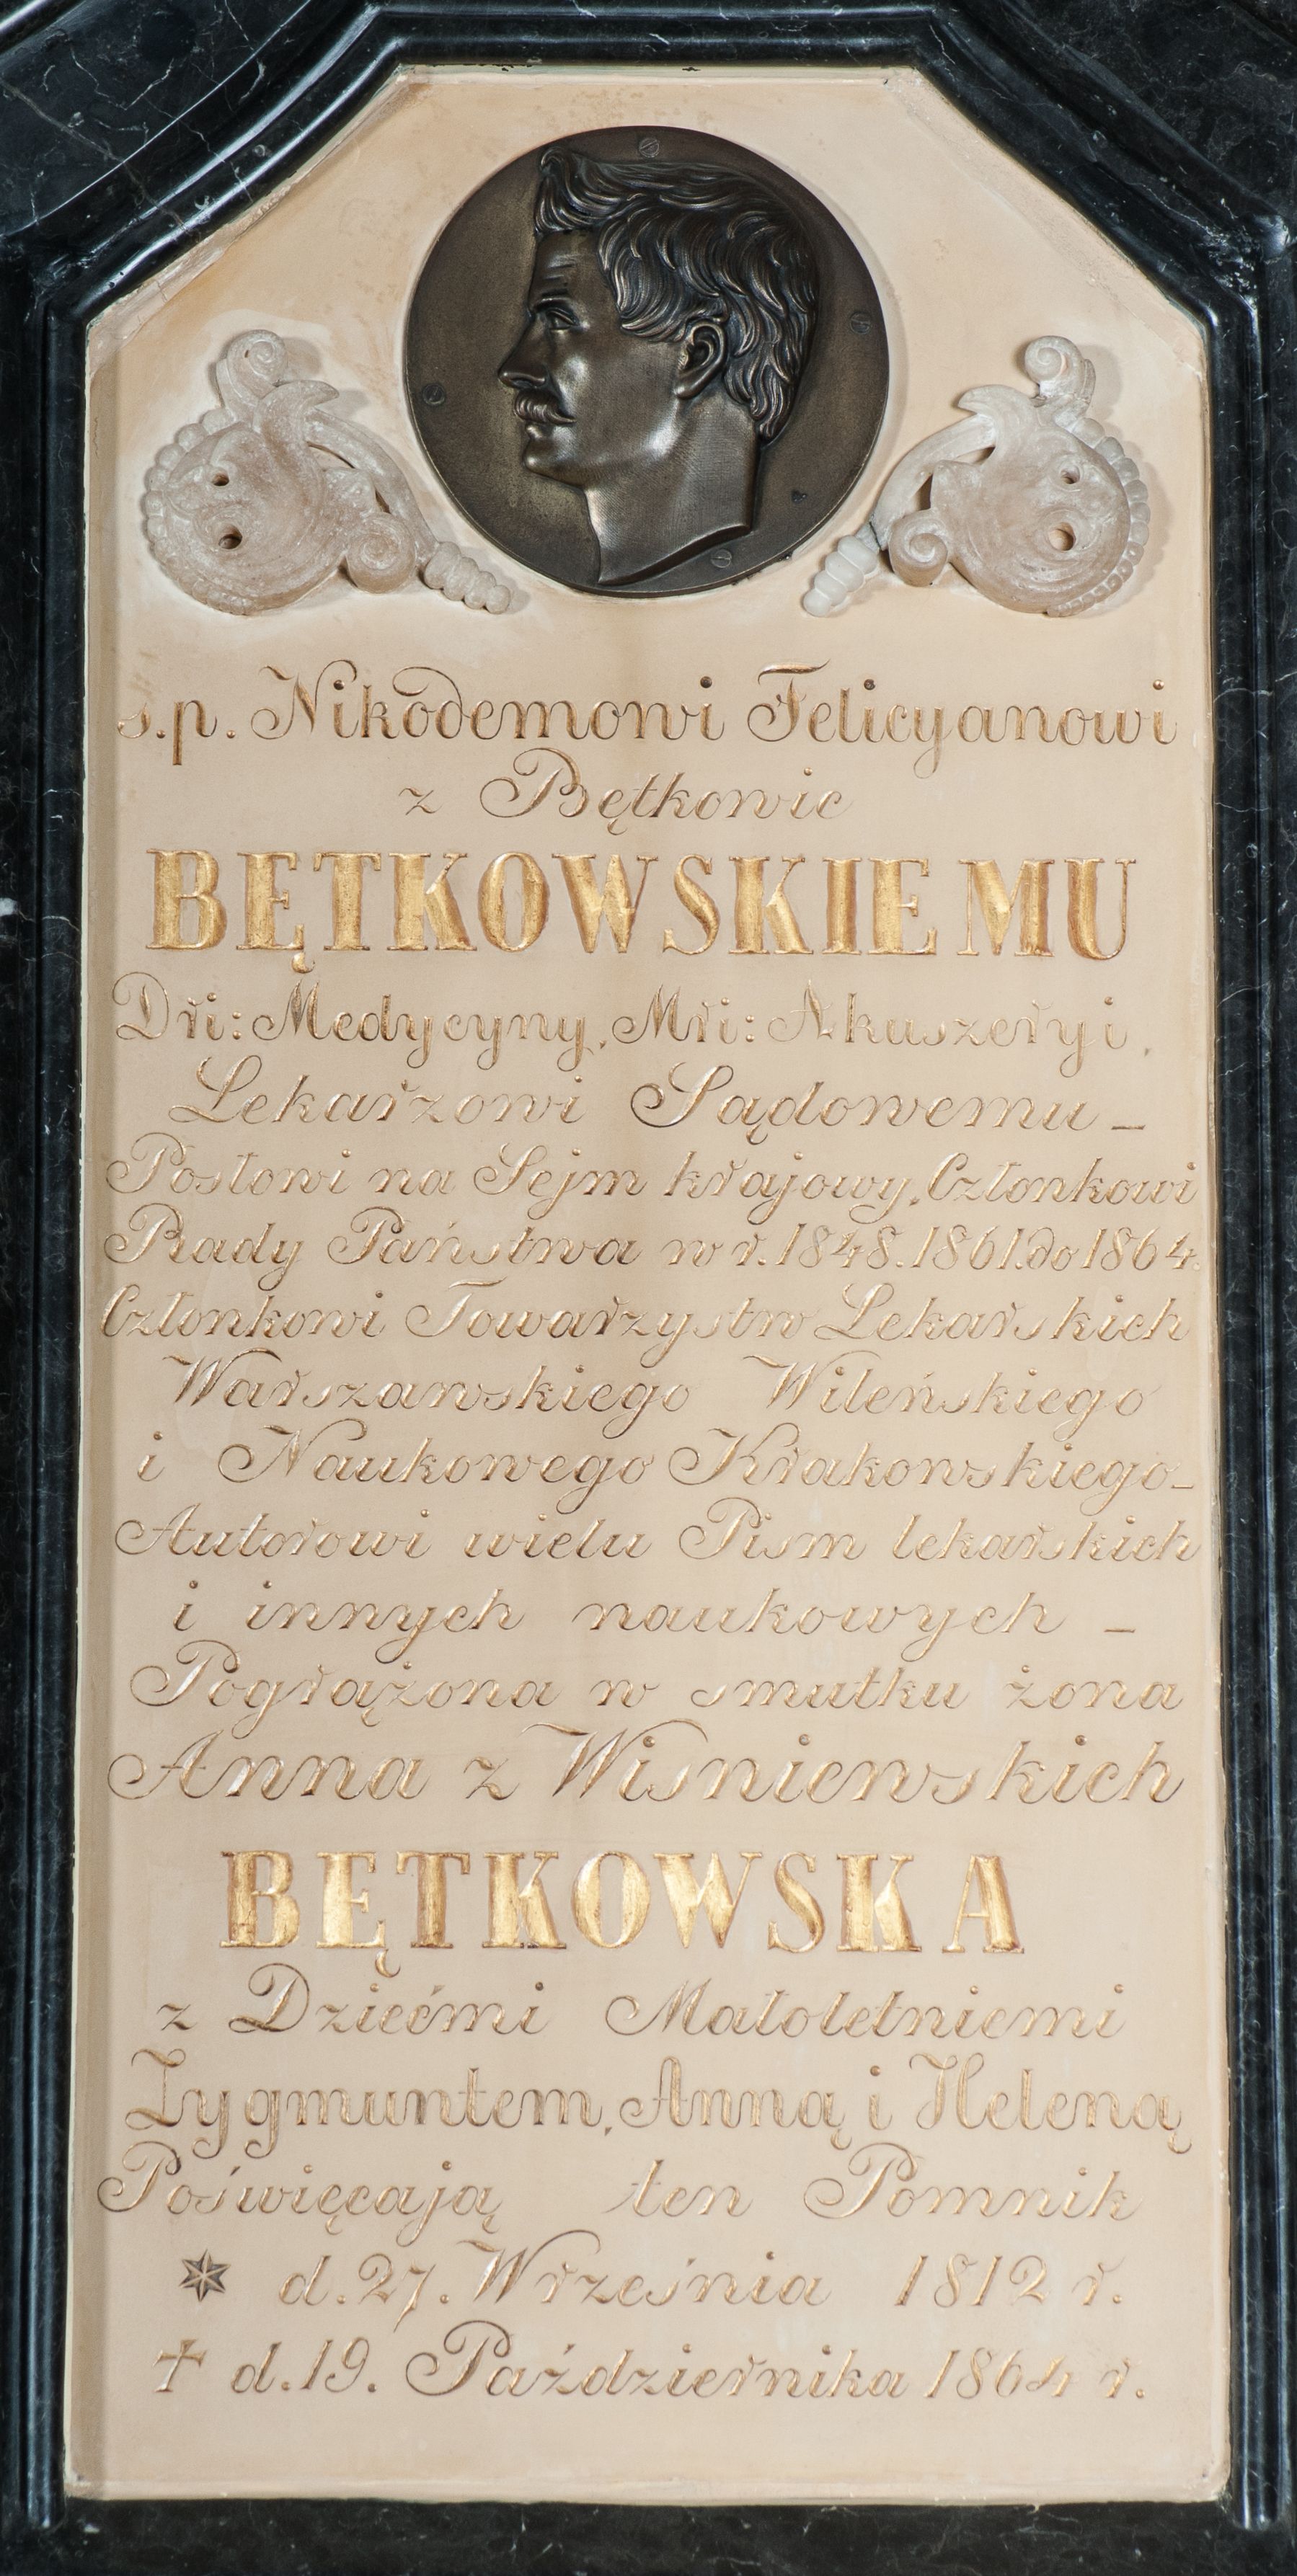 s.p. Nikodemowi Felicyanowi
z Bętkowic
BĘTKOWSKIEMU
Dri: Medycyny, Mri: Akuszeryi,
Lekarzowi Sądowemu _
Posłowi na Sejm krajowy, Członkowi
Rady Państwa w r. 1848. 1861. do 1864.
Członkowi Towarzystw Lekarskich
Warszawskiego Wileńskiego
i Naukowego Krakowskiego _
Autorowi wielu Pism lekarskich
i innych naukowych _
Pogrążona w smutku żona
Anna z Wisniewskich
BĘTKOWSKA
z Dziećmi Małoletniemi
Zygmuntem, Anną i Heleną
Poświęcają ten Pomnik
✶ d. 27. Września 1812 r.
† d. 19. Października 1864 r.